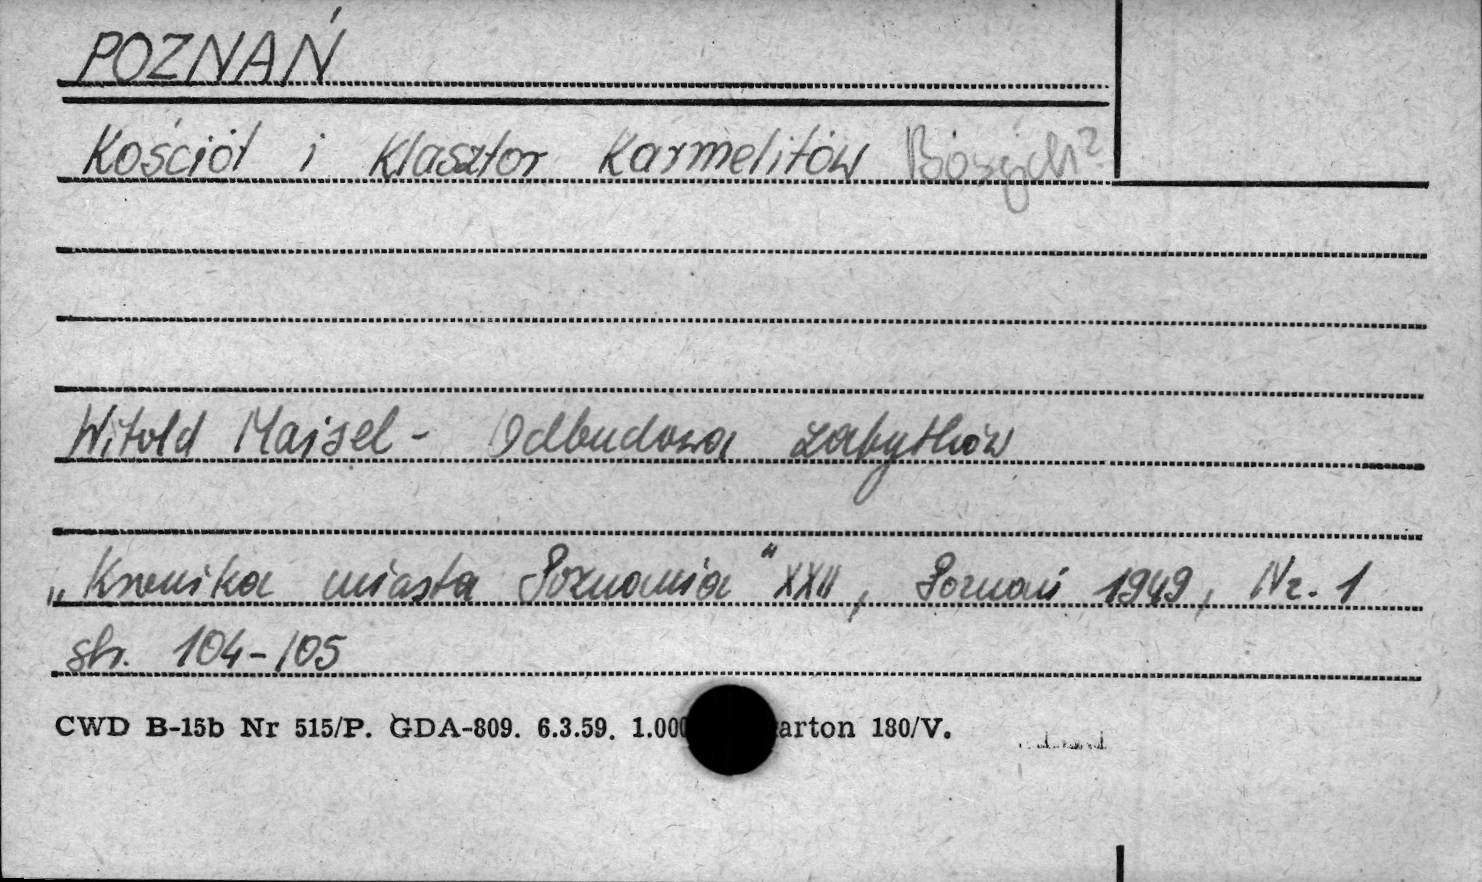 POZNAŃ
Kościół i Klasztor Karmelitów Bosych?
Witold Maisel - Odbudowa zabytków
„Kronika miasta Poznania" XXII, Poznań 1949, Nr. 1
str. 104-105
CWD B-15b Nr 515/P. GDA-809. 6.3.59. 1.000 arton 180/V.